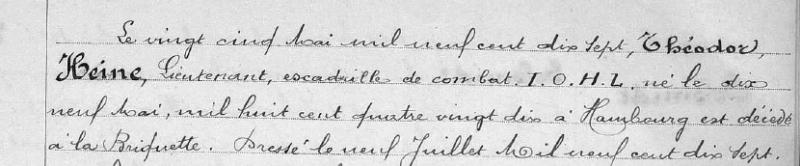 Le vingt cinq Mai mil neuf cent dix sept, Théodor,
Heine, Lieutenant, escadrille de combat. I. O. H. L. né le dix
neuf Mai, mil huit cent quatre vingt dix à Hambourg est décédé
à la Briquette. Dressé le neuf Juillet Mil neuf cent dix sept.